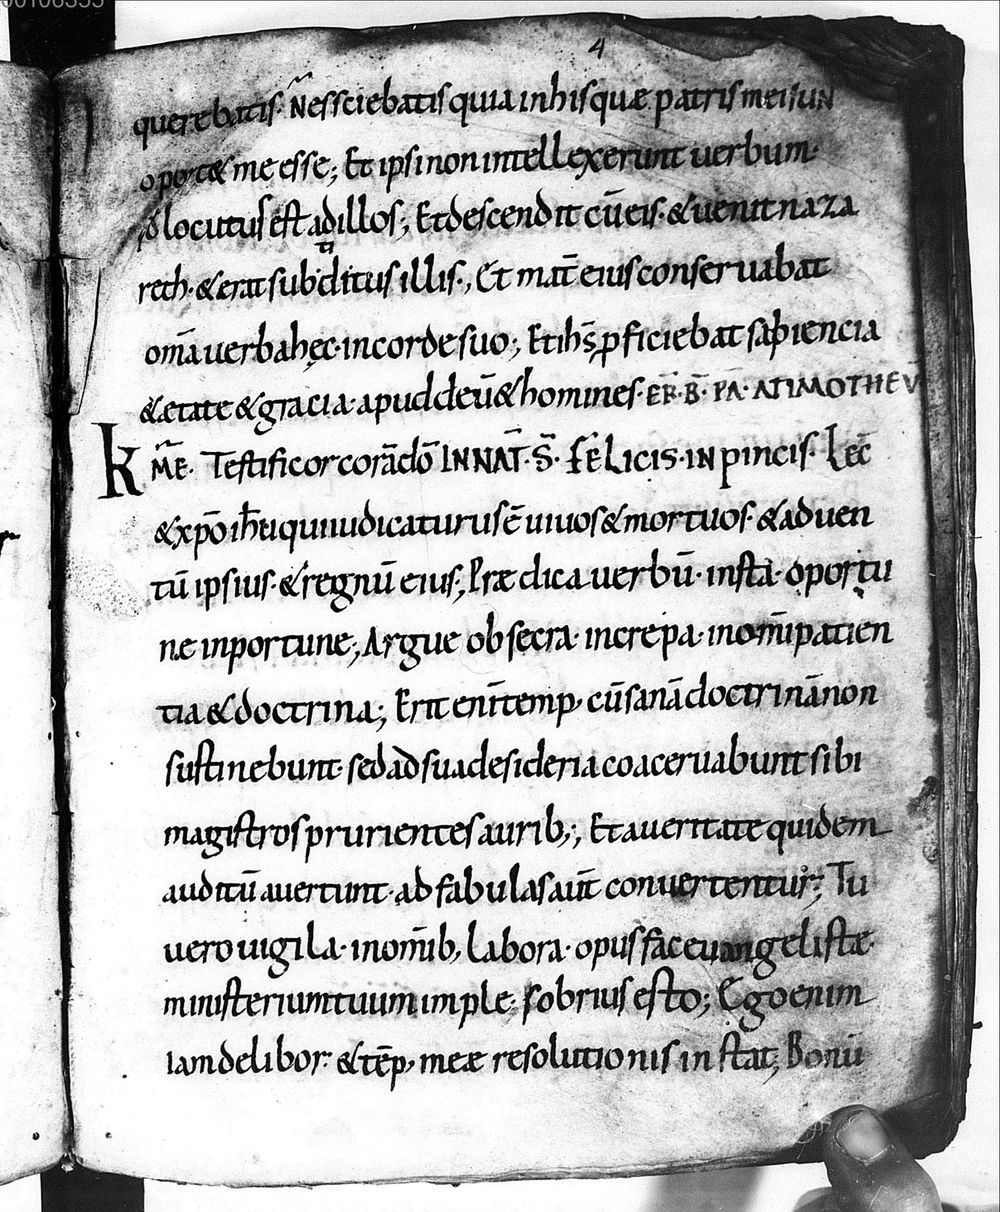 4
querebatis. Nessciebatis quia inhis quæ patris mei sun
oport& me esse; Et ipsi non intellexerunt uerbum.
qd locutus est adillos; Etdescendit cū eis. & uenit naza
reth. & erat subditus illis., Et mat̄ eius conseruabat
om̄a uerba hęc. incorde suo; Et ih̄s pficiebat sapiencia
& etate & gracia. apud deū & homines. EP̄. B̄. PA. ATIMOTHEV̄
K̄ME. Testificor corā dō IN NAT̄. S̄. FELICIS. IN pincis. Lec̄
& xp̄o ih̄u qui iudicaturus ē uiuos & mortuos. & aduen
tū ipsius. & regnū eius; Prædica uerbū. insta. oportu
ne inportune; Argue obsecra. increpa. inom̄i patien
tia & doctrina; Erit eni̅ temp. cū sanā doctrinā non
sustinebunt. sed ad sua desideria coaceruabunt sibi
magistros prurientes aurib;, Et a ueritate quidem
auditū auertunt. ad fabulas aut̄ conuertentur; Tu
uero uigila. inom̄ib; labora. opus fac euangelistæ.
ministerium tuum imple. sobrius esto; Ego enim
iam delibor. & tēp. meæ resolutionis instat; Bonū